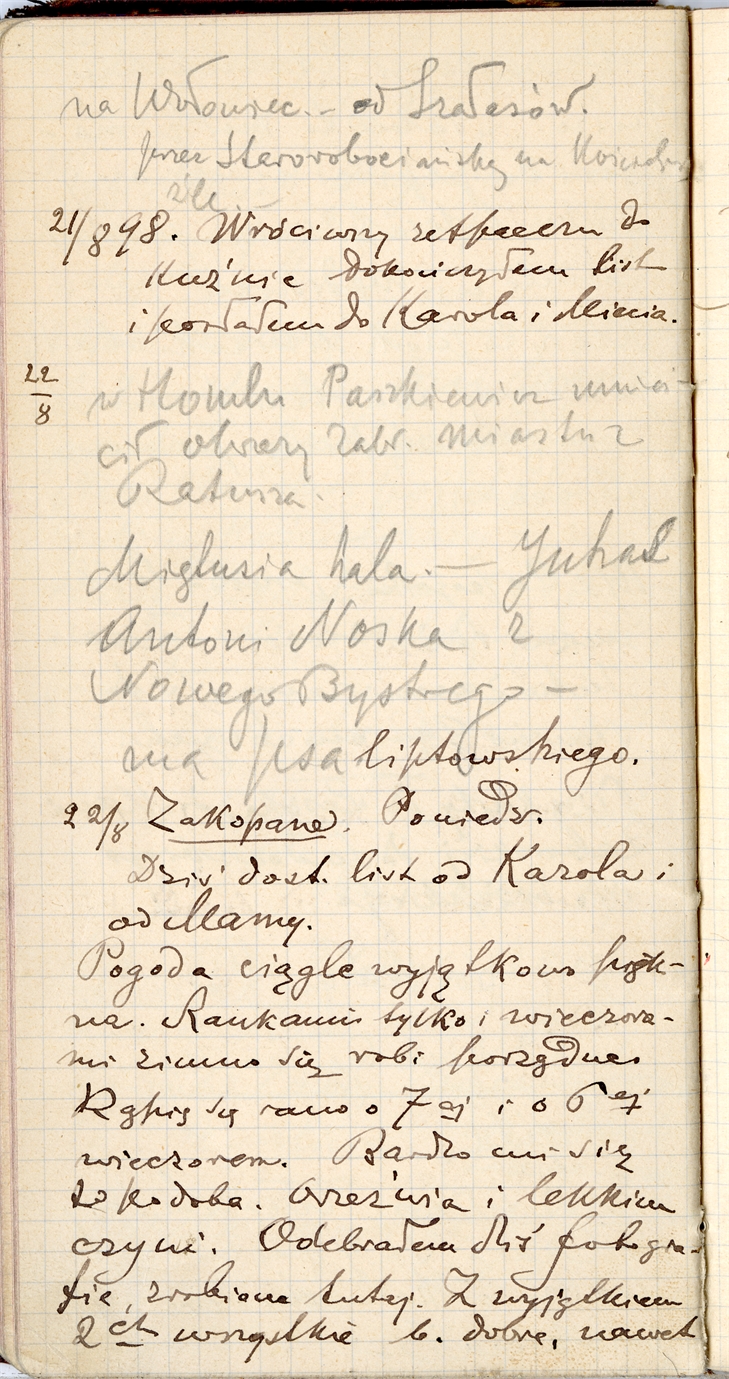 na Wołowiec. – od Szałasów.
przez Starorobociańską na
źle. –
21/8 98. Wróciwszy z do
Kuźnic dokończyłem list
i posłałem do Karola i Minia.
22/8 w Homlu Paszkiewicz umieś-
cił obrazy zabr. miastu z
Ratusza.
Miętusia hala. – Juhas
Antoni Noska z
Nowego Bystrego –
ma psa liptowskiego.
22/8 Zakopane. Poniedz.
Dziś dost. list od Karola i
od Mamy.
Pogoda ciągle wyjątkowo pięk-
na. Rankami tylko i wieczora-
mi zimno się robi porządne.
Kąpię się rano o 7ej i o 6ej
wieczorem. Bardzo mi się
to podoba. Orzeźwia i lekkim
czyni. Odebrałem dziś fotogra-
fie, zrobione tutaj. Z wyjątkiem
2ch wszystkie b. dobre, nawet